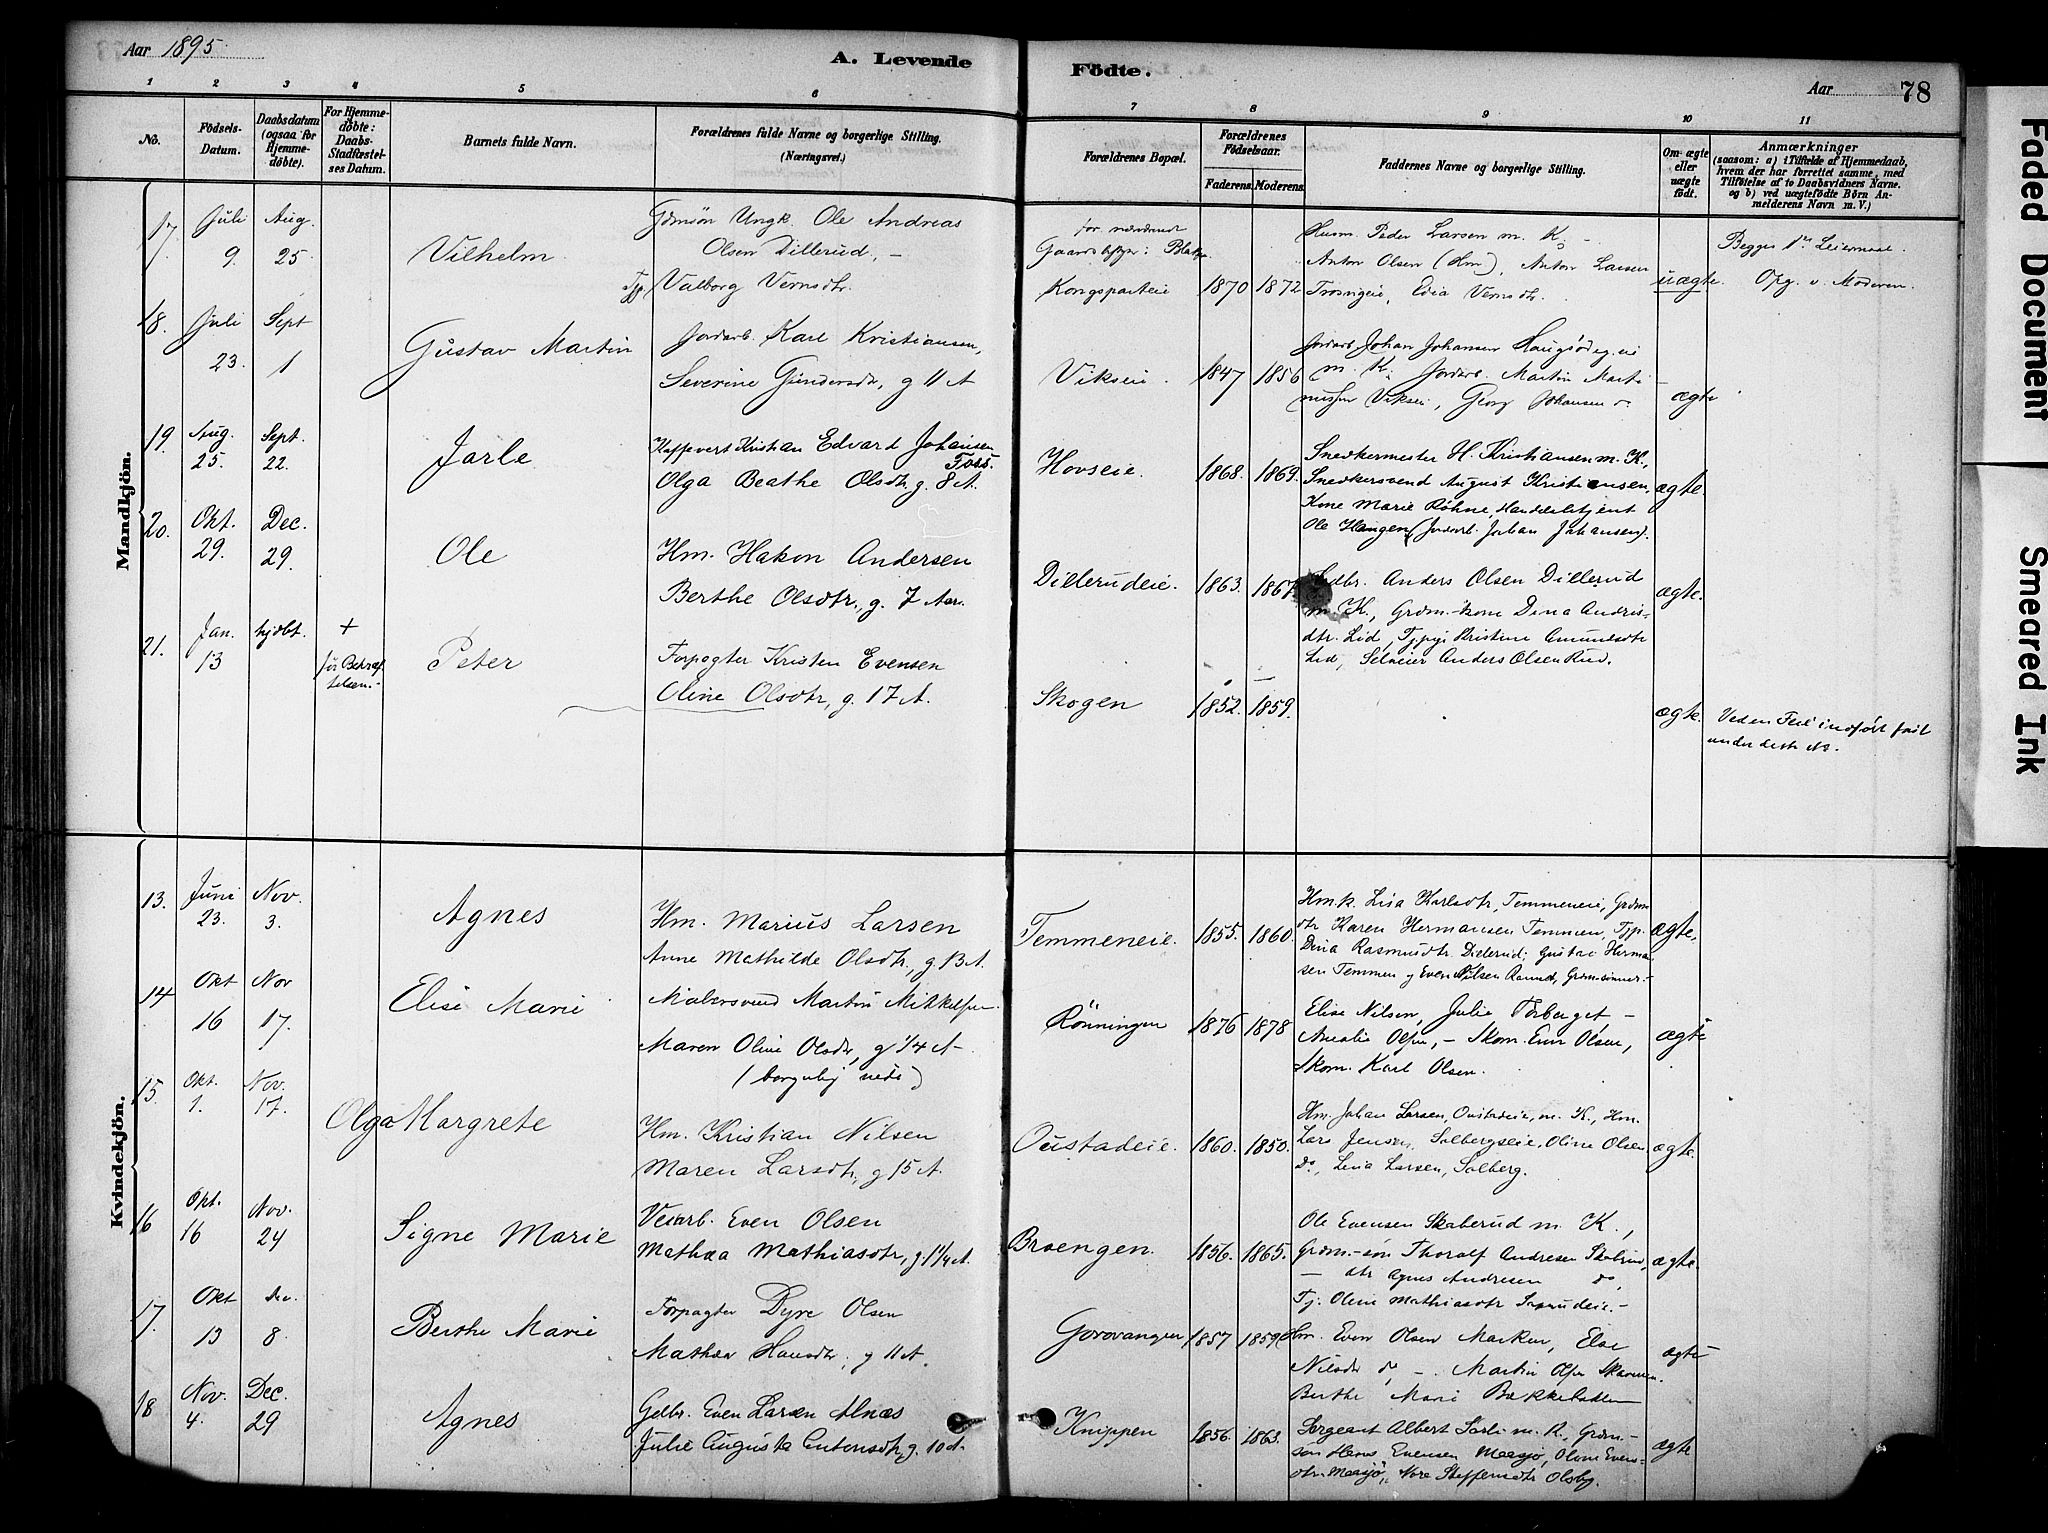 Aar 1895.
A. Levende Födte.
Aar 78
1 2 3 4 5 6 7 8 9 10 11
No.
Födsels-Datum.
Daabsdatum (ogsaa for Hjemmedöbte).
For Hjemmedöbte: Daabs-Stadfæstelses Datum.
Barnets fulde Navn.
Forældrenes fulde Navne og borgerlige Stilling.
(Næringsvei.)
Forældrenes Bopæl.
Forældrenes Födselsaar.
Faderens. Moderens.
Faddernes Navne og borgerlige Stilling.
Om ægte eller uægte født.
Anmærkninger
(saasom: a) i Tilfælde af Hjemmedaab, hvem der har forrettet samme, med Tilföielse af to Daabsvidners Navne. og b) ved uægtefödte Börn Anmelderens Navn m. V.)
Mandkjön.
17. Juli 9. Aug. 25. Vilhelm.
Ungk. Ole Andreas
Olsen Dillerud, -
Valborg Vernsdtr.
Kongsparteie 1870 1872
Husm. Peder Larsen m. K. -
Anton Olsen (Hm), Anton Larsen
uægte.
Begges 1ste Leiermaal.
Opg. v. Moderen.
18. Juli 23. Sept 1 Gustav Martin
Jordarb. Karl Kristiansen,
Severine Gundersdtr, g 11 A
Vikseie. 1847 1856
Jordarb. Johan Johansen
m. K. Jordarb. Martin Marti-
nussen Vikseie, Georg Johansen do
ægte
19. Aug. 25. Sept. 22. Jarle
Kristian Edvard Johansen
Foss.
Olga Beathe Olsdtr. g. 8 A.
Hovseie. 1868. 1869.
Snedkermester H. Kristiansen m. K.,
Snedkersvend August Kristiansen,
Kone Marie Røhne, Handelsbetjent
Ole Haugen (Jordarb. Johan Johansen).
ægte.
20. Okt. 29. Dec. 29. Ole
Hm. Hakon Andersen
Berthe Olsdtr., g. 7 Aar.
Dillerudeie. 1863. 1867.
Gdbr. Anders Olsen Dillerud
m K., Grdm.-kone Dina Andris-
dtr. Lid, Tjpige Kristine Amundsdtr
Lid, Selveier Anders Olsen Rud.
ægte.
21. Jan. 13 hjdbt. + før Bekræf-
telsen.-
Peter
Forpagter Kristen Evensen
Oline Olsdtr, g. 17 A.
Skogen 1852. 1859.
ægte.
Ved en Feil indført her
under dette No.
Kvindekjön.
13. Juni 23. Nov. 3. Agnes
Hm. Marius Larsen
Anne Mathilde Olsdtr., g 13 A.
Temmeneie. 1855. 1860.
Hmk. Lisa Karlsdtr, Temmeneie, Grdm-
dtr Karen Hermansen Temmen, Tjp.
Dina Rasmusdtr. Dillerud; Gustav Herman-
sen Temmen g Even Nilsen Grdmsønner.-
ægte.
14 Okt 16 Nov 17. Elise Marie
Malersvend Martin Mikkelsen
Maren Oline Olsdtr, g 1/4 A-
(borgerlig viede)
Rönningen 1876 1878
Elise Nilsen, Julie Torberget -
Amalie Olsen, - Skom. Even Olsen,
Skom. Karl Olsen.
ægte
15. Okt. 1. Nov. 17. Olga Margrete
Hm. Kristian Nilsen
Maren Larsdtr., g 15 A.
Oustadeie. 1860. 1850.
Hm. Johan Larsen, Oustadeie, m. K., Hm.
Lars Jensen, Solbergseie, Oline Olsen
do, Lina Larsen, Solberg.
ægte.
16 Okt. 16 Nov. 24 Signe Marie
Veiarb. Even Olsen
Mathea Mathiasdtr, g 1 1/4 A.
Braengen. 1856. 1865.
Ole Evensen Skaberud m. K.,
Grdm.-søn Thoralf Andresen
- dtr Agnes Andresen do,
Tj. Oline Mathiasdtr
ægte.
17. Okt 13 Dec. 8. Berthe Marie
Forpagter Dyre Olsen
Mathea Hansdtr, g 11 A.
Gorovangen 1857 1859
Hm. Even Olsen Marken, Else
Nilsdtr do -. Martin Olsen
Berthe Marie
ægte
18 Nov. 4. Dec. 29 Agnes
Gdbr. Even Larsen Alnæs
Julie Augusta Antonsdtr, g. 10 A.
Knippen 1856. 1863.
Sergeant Albert m. K., Grdm.-
søn Hans Evensen Mæsjø, Oline Evens-
dtr Mæsjø, Steffensdtr Olsby.
ægte
Faded Document
Smeared Ink